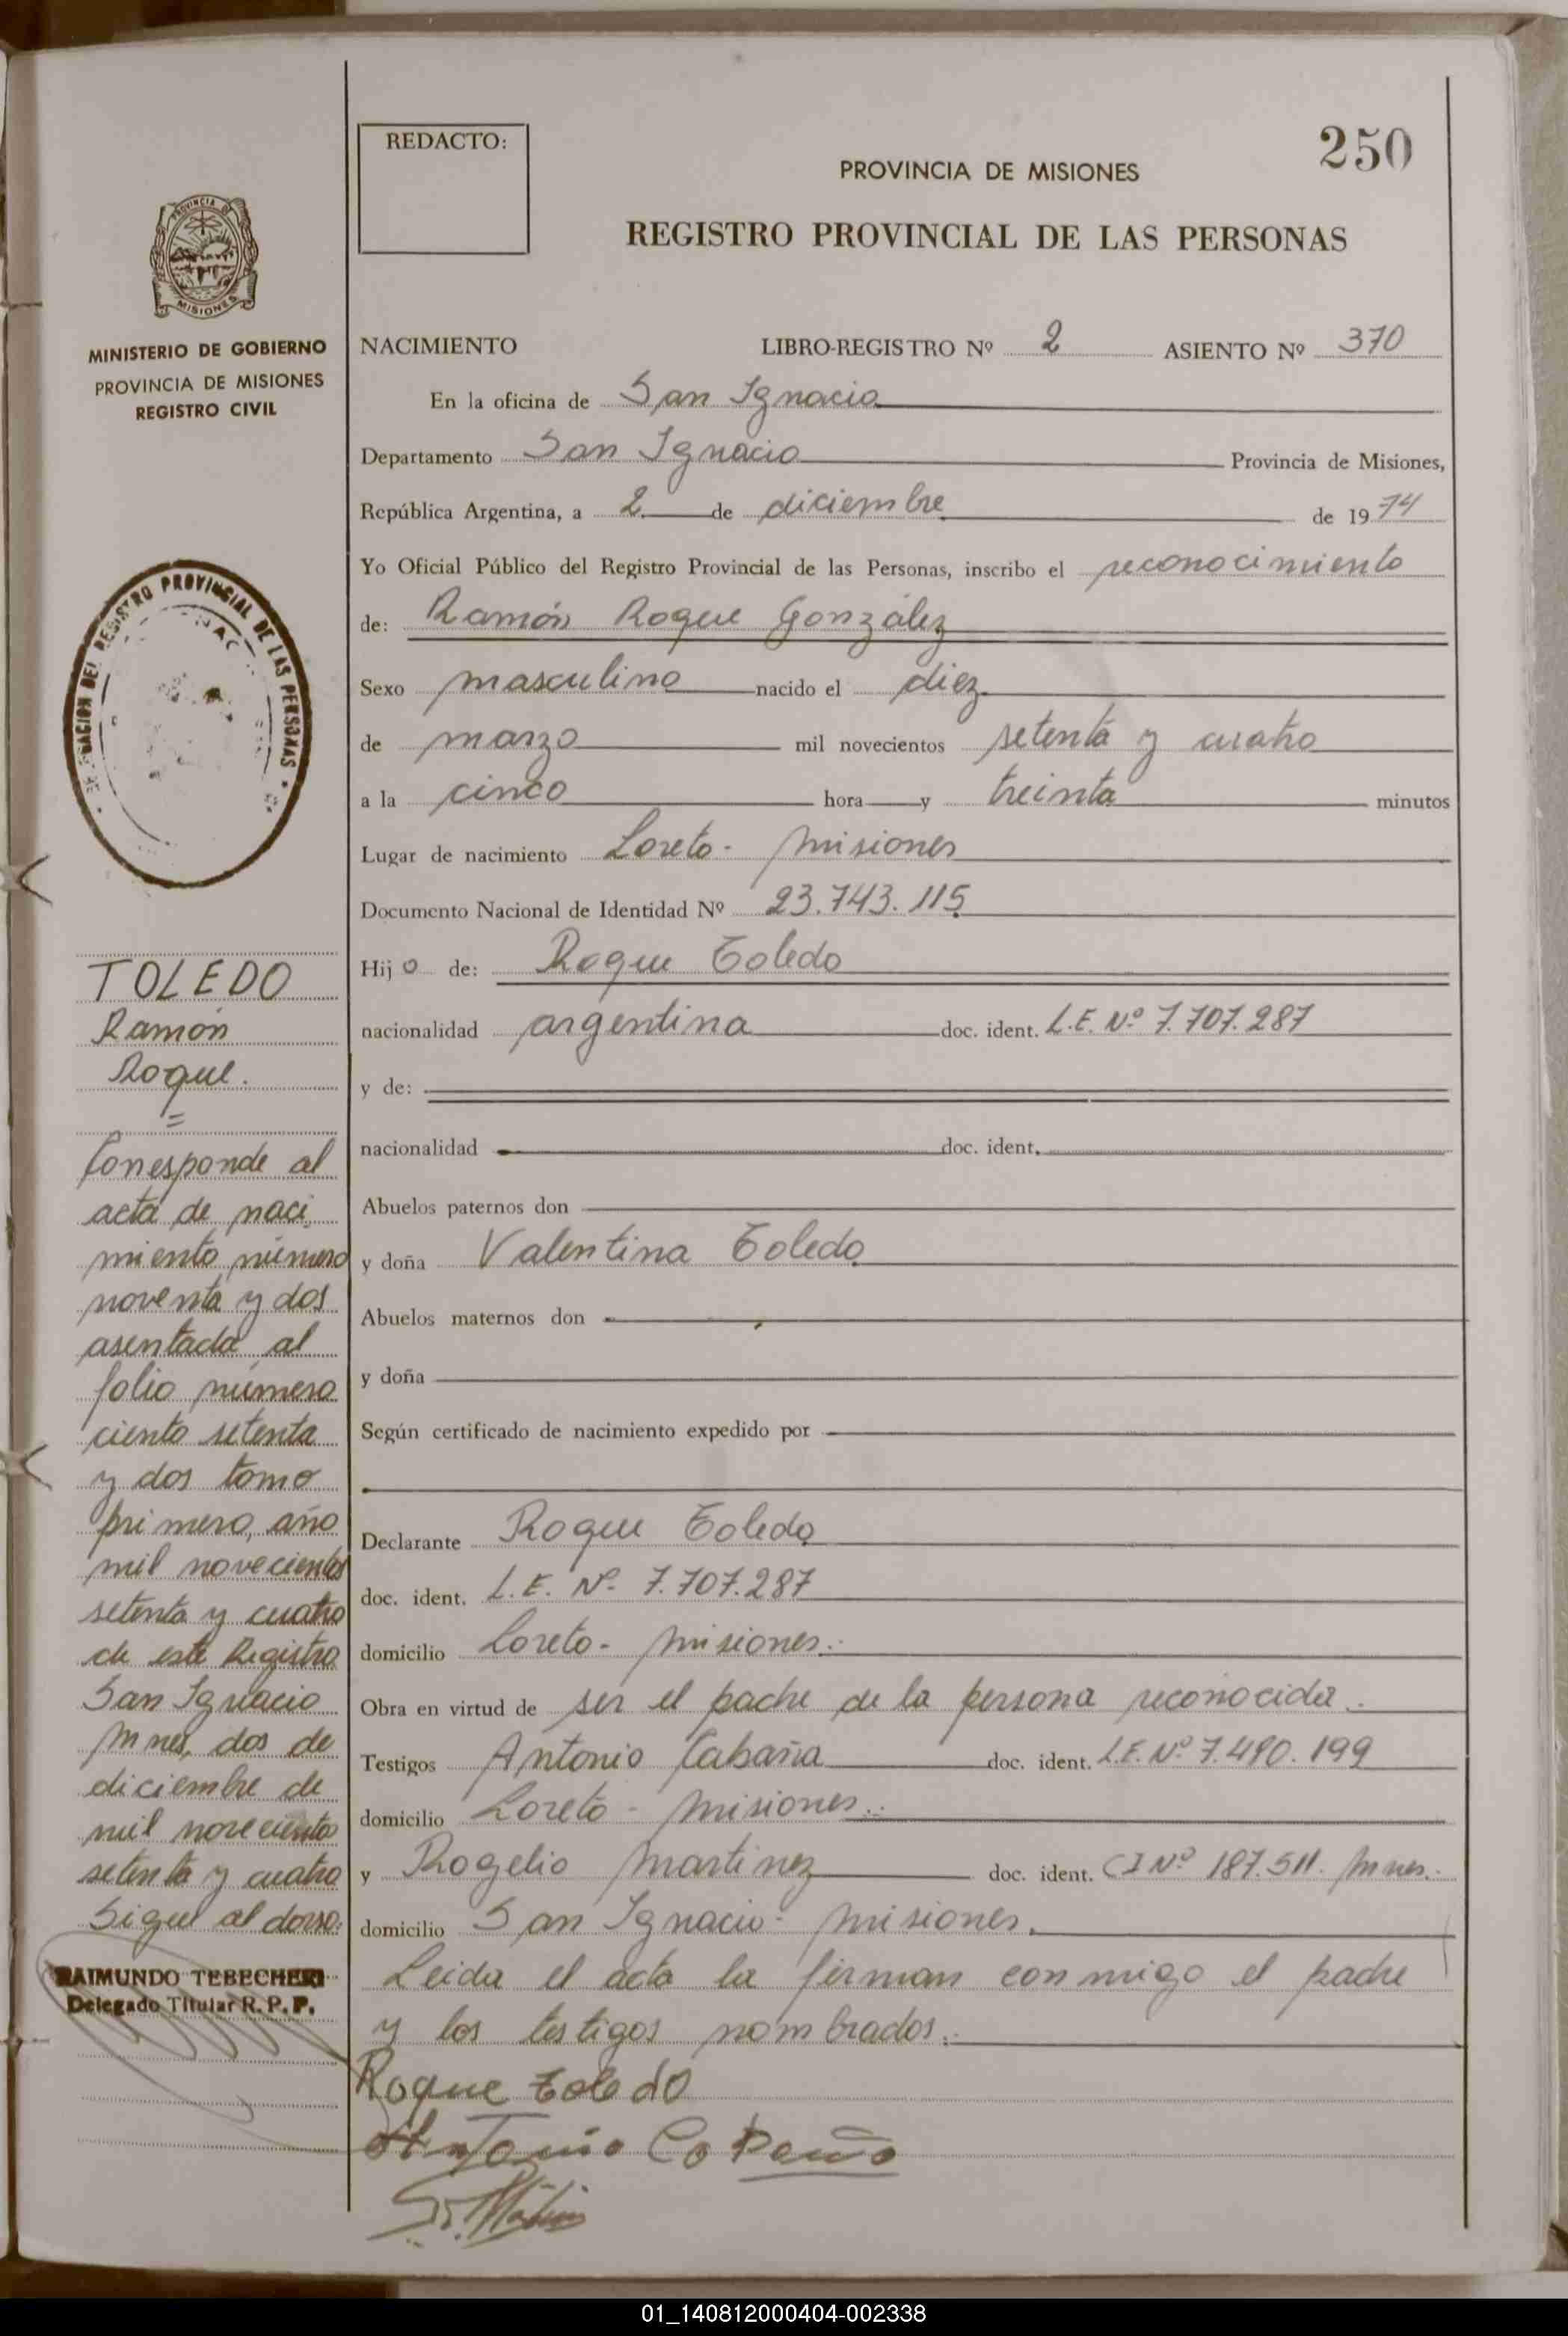 REDACTO:
250
PROVINCIA DE MISIONES
REGISTRO PROVINCIAL DE LAS PERSONAS
PROVINCIA DE
MISIONES
MINISTERIO DE GOBIERNO
PROVINCIA DE MISIONES
REGISTRO CIVIL
NACIMIENTO LIBRO-REGISTRO Nº 2 ASIENTO Nº 370
En la oficina de San Ignacio
Departamento San Ignacio Provincia de Misiones,
República Argentina, a 2 de diciembre de 1974
Yo Oficial Público del Registro Provincial de las Personas, inscribo el reconocimiento
de: Ramón Roque González
Sexo masculino nacido el diez
de marzo mil novecientos setenta y cuatro
a la cinco hora y treinta minutos
Lugar de nacimiento Loreto - Misiones
Documento Nacional de Identidad Nº 23.743.115
Hijo de: Roque Toledo
nacionalidad argentina doc. ident. L.E. Nº 7.707.287
y de:
nacionalidad doc. ident.
Abuelos paternos don
y doña Valentina Toledo
Abuelos maternos don
y doña
Según certificado de nacimiento expedido por
Declarante Roque Toledo
doc. ident. L.E. Nº 7.707.287
domicilio Loreto - Misiones.
Obra en virtud de ser el padre de la persona reconocida.
Testigos Antonio Cabaña doc. ident. L.E. Nº 7.490.199
domicilio Loreto - Misiones.
y Rogelio Martinez doc. ident. CI Nº 187.511. Mnes.
domicilio San Ignacio - Misiones.
Leida el acta la firman conmigo el padre
y los testigos nombrados.
Roque Toledo
REGISTRO PROVINCIAL DE LAS PERSONAS
TOLEDO
Ramón
Roque.
=
Corresponde al
acta de naci
miento número
noventa y dos
asentada al
folio número
ciento setenta
y dos tomo
primero, año
mil novecientos
setenta y cuatro
de este Registro
San Ignacio
Mnes, dos de
diciembre de
mil novecientos
setenta y cuatro
Sigue al dorso.
RAIMUNDO TEBECHERI
Delegado Titular R. P. P.
01_140812000404-002338